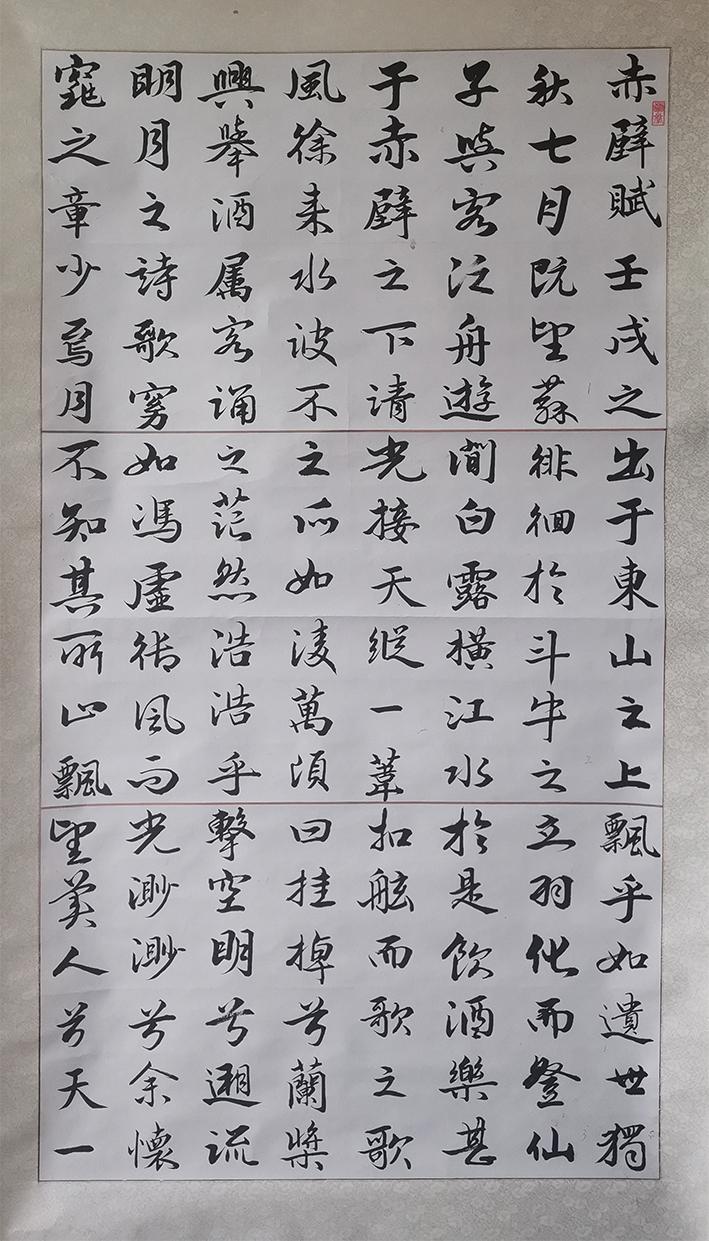 赤壁賦壬戌之
秋七月既望蘇
子與客泛舟遊
于赤壁之下清
風徐来水波不
興舉酒属客誦
明月之詩歌窈
窕之章少焉月
出于東山之上
徘徊於斗牛之
間白露橫江水
光接天縱一葦
之所如淩萬頃
之茫然浩浩乎
如馮虛御風而
不知其所止飄
飄乎如遺世獨
立羽化而登仙
於是飲酒樂甚
扣舷而歌之歌
曰桂棹兮蘭槳
擊空明兮遡流
光渺渺兮余懷
望美人兮天一